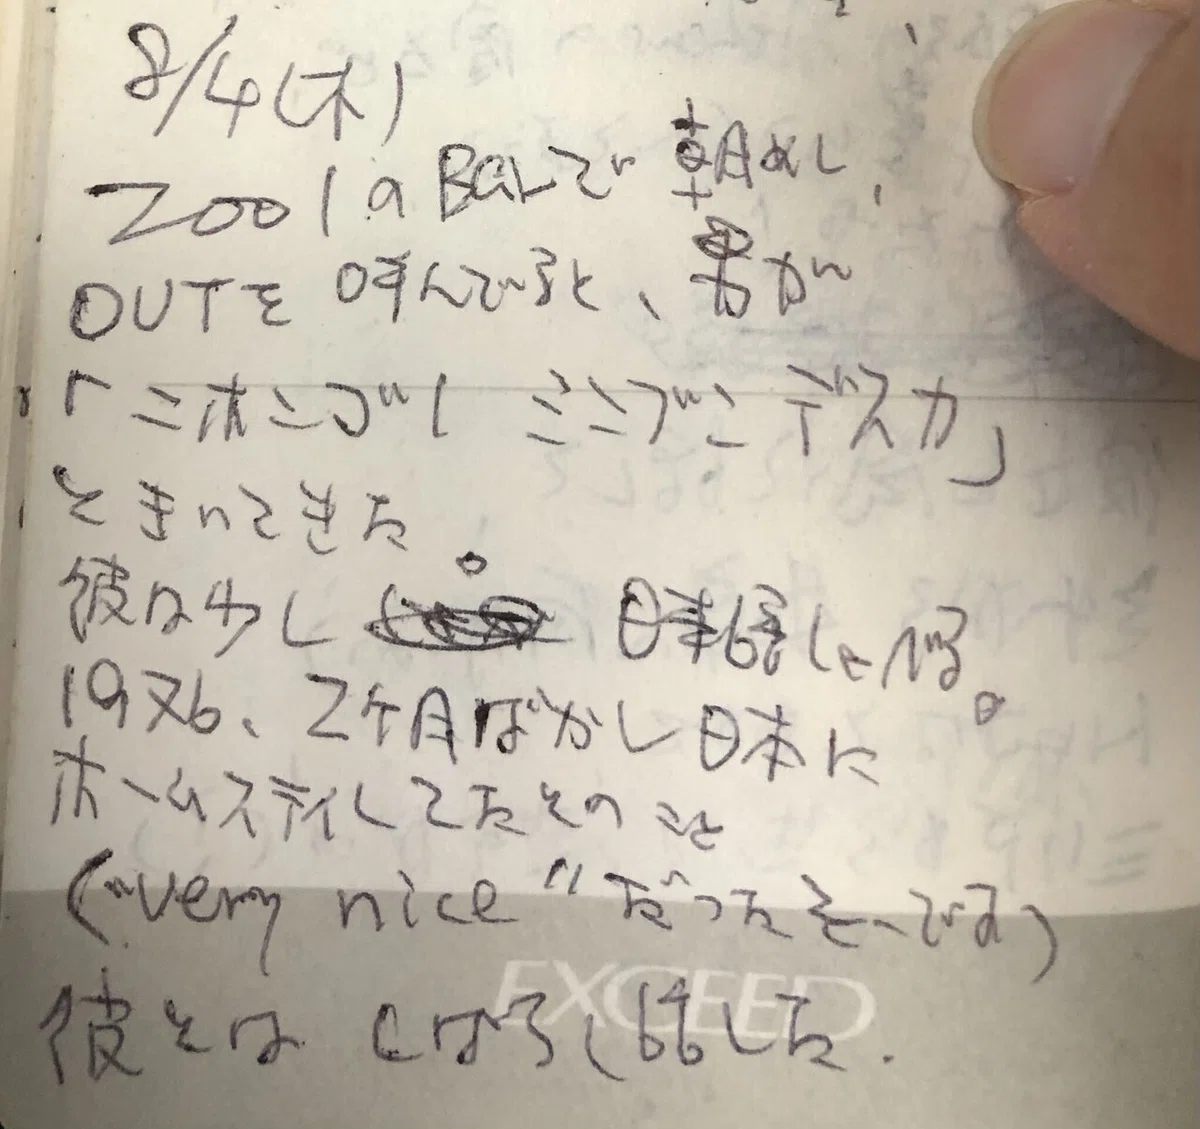 8/4(木)
ZOO 1のBGLで朝めし、
OUTを呼んでると、男が
「ニホンゴノ シンブン デスカ」
ときいてきた
彼は少し 日本語しゃべる。
19才の、2ケ月ばかし日本に
ホームスティしてたとのこと
("very nice"だったそーです)
彼とは しばらく話した.
EXCEED